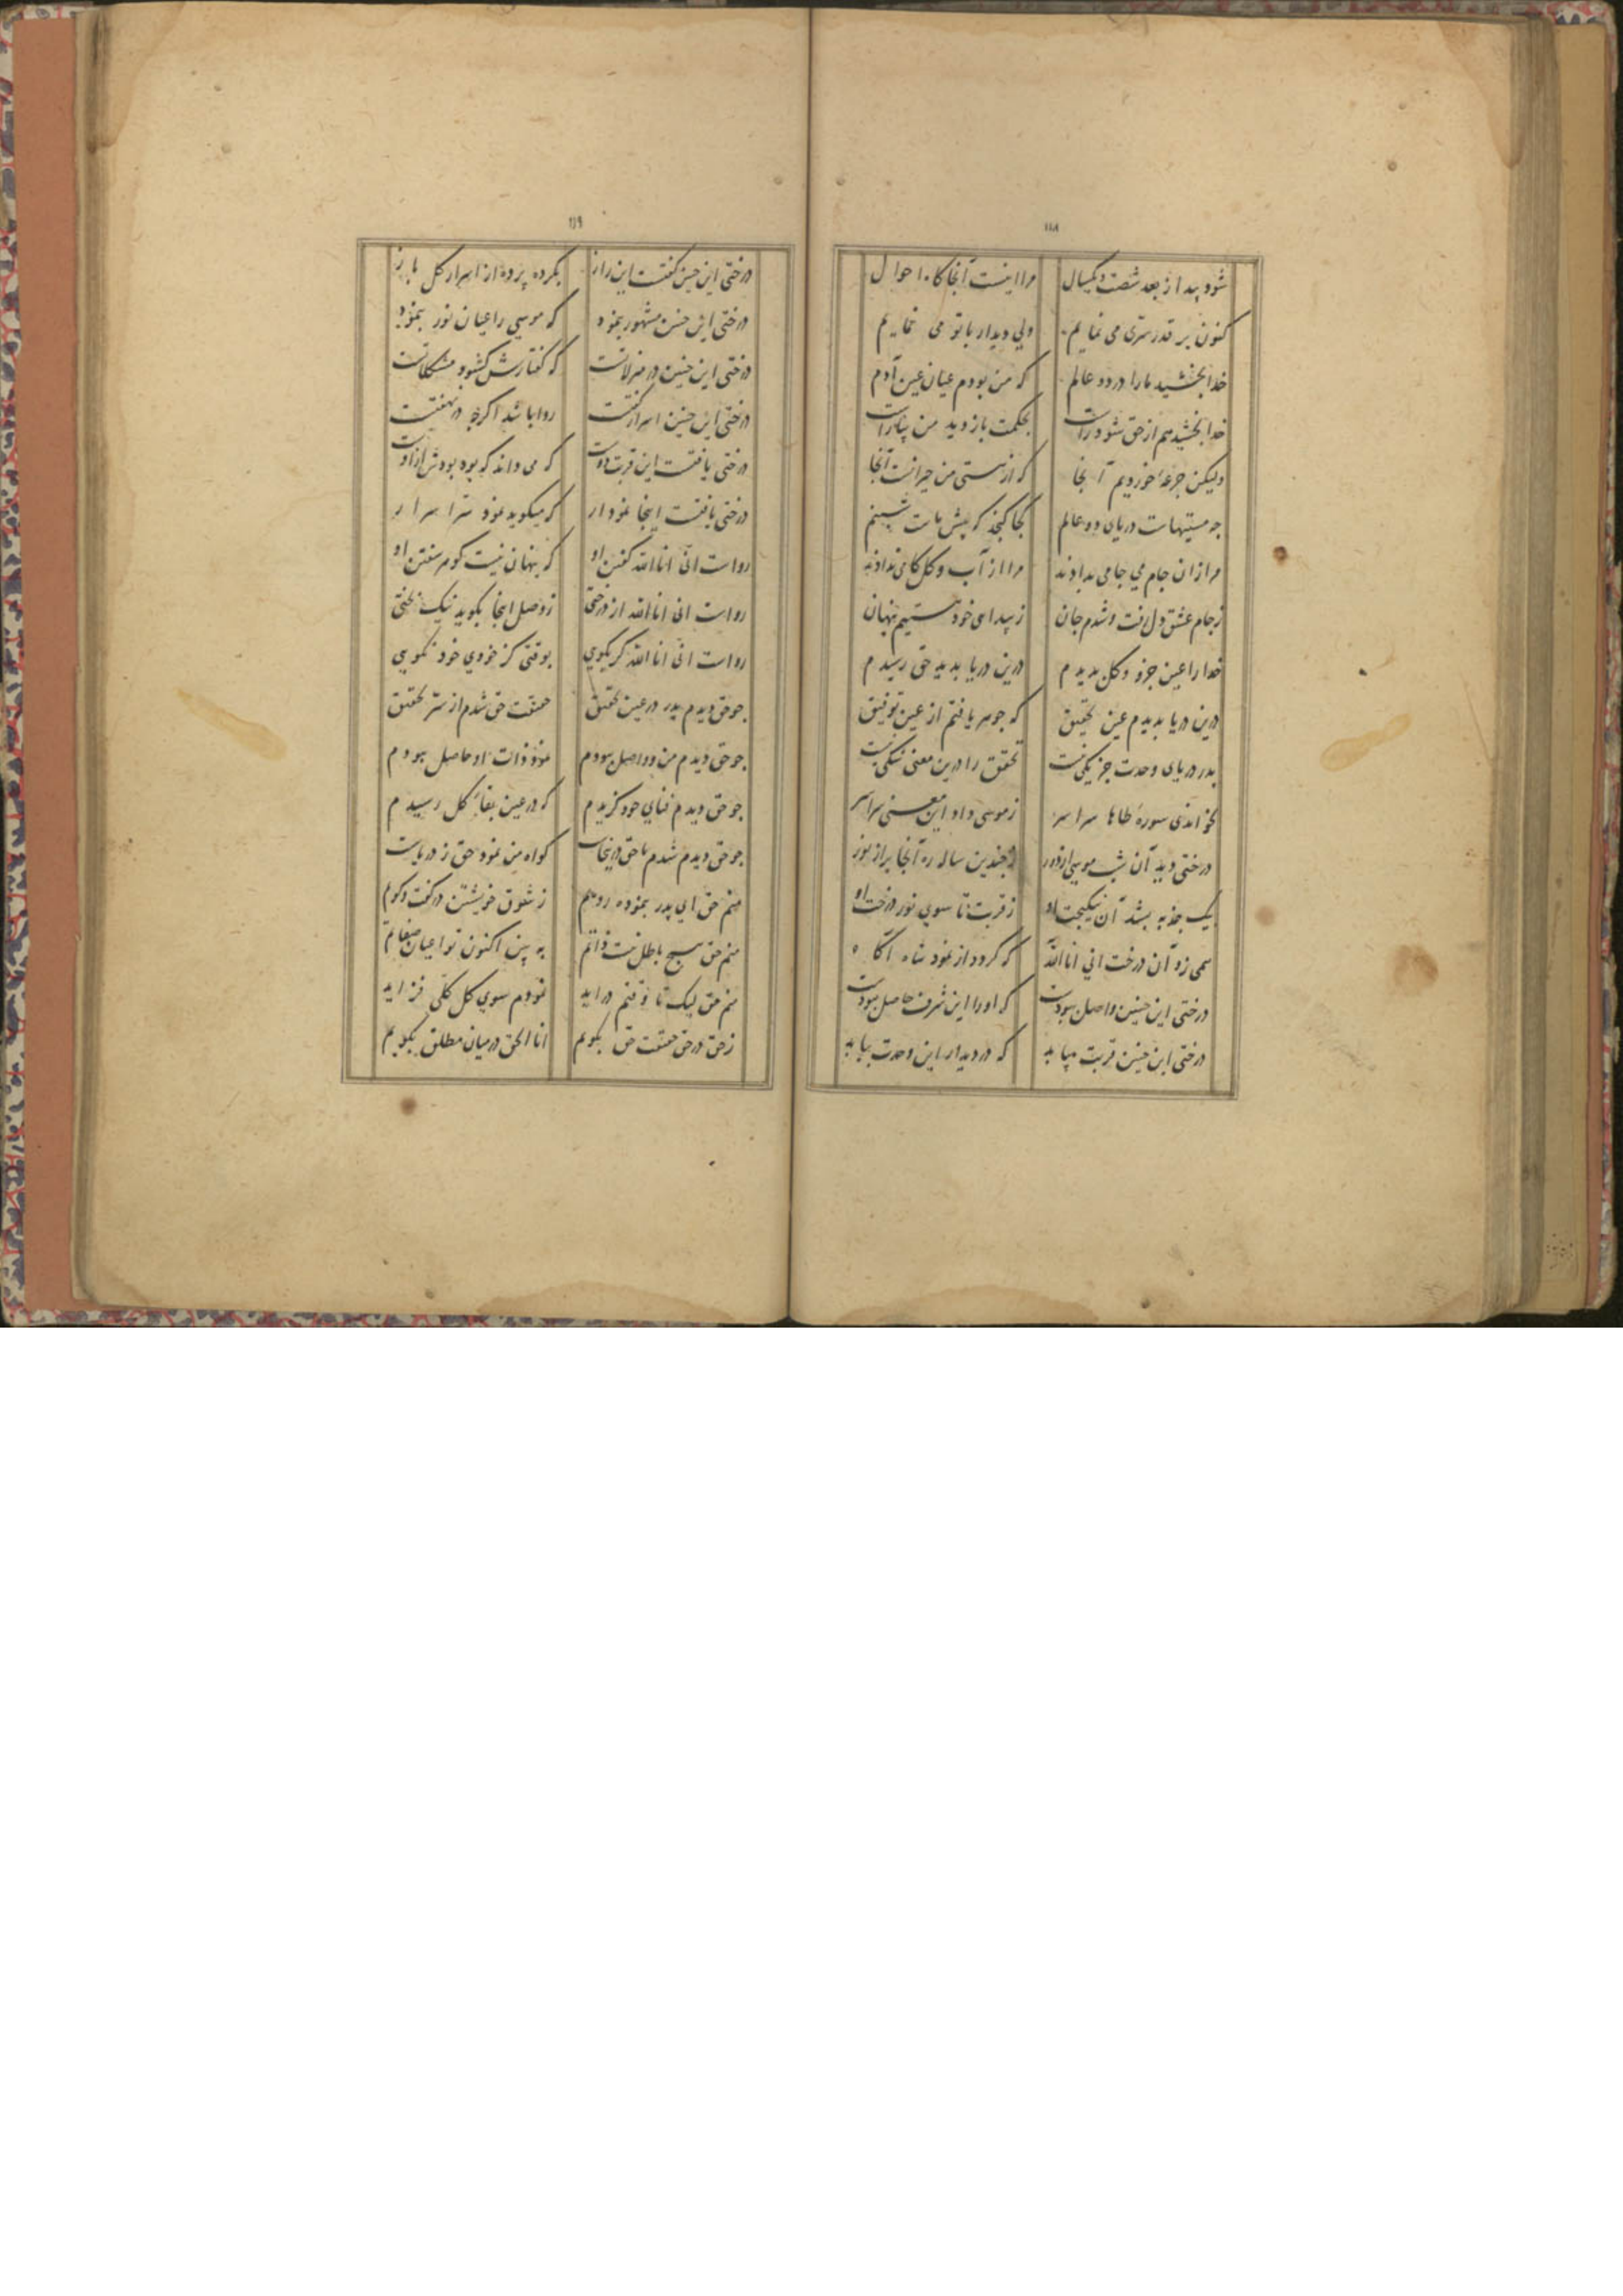 ۱۱۸
شود پیدا ز بعد شصت و یکسال مرا اینست آنجا کاه احوال
کنون بر قدر سری می نمایم ولی دیدار با تو می نمایم
خدا بخشید ما را در دو عالم که من بودم عیان عین آدم
خدا بخشید هم از حق شود راست بحکمت باز دید من
ولیکن جرعهٔ خوردیم آنجا که از مستی من حیرانست آنجا
چه مستیهاست دریای دو عالم کجا کنجد که پیش ماست شبنم
مرا زان جام می جامی بدادند مرا از آب و کل کامی بدادند
ز جام عشق دل رفت و شدم جان ز پیدا می خود هستیم پنهان
خدا را عین جزو و کل بدیدم درین دریا بدید حق رسیدم
درین دریا بدیدم عین تحقیق که جوهر یافتم از عین توفیق
پدر دریای وحدت جز یکی نیست تحقق را درین معنی شکی نیست
بخواندی سورهٔ طاها سراسر ز موسی داد این معنی سراسر
درختی دید آن شب موسی از دور ز چندین ساله ره آنجا پر از نور
یک جذبه بشد آن نیکبخت او ز قربت تا سوی نور درخت او
همی زد آن درخت انی انا الله که کرود از نمود شاه آکاه
درختی این چنین واصل ببودست که او را این شرف حاصل ببودست
درختی این چنین قربت بیابد که در دیدار این وحدت بیابد
۱۱۹
درختی این چنین کفتست این راز بکرده پرده از اسرار کل باز
درختی این چنین مشهور بنمود که موسی را عیان نور بنمود
درختی این چنین در منزلاتست که کفتارش کشود مشکلاتست
درختی این چنین اسرار کفتست روا باشد اکرچه در نهفتست
درختی یافتست این قربت دوست که می داند که بود بودش از اوست
درختی یافتست اینجا نمودار که میکوید نمود سر اسرار
رواست انی انا الله کفتن او که پنهان نیست کوهر سفتن او
رواست انی انا الله از درختی ز وصل اینجا بکوید نیک بختی
رواست انی انا الله کر بکوی بوقتی کز خودی خود نکویی
چو حق دیدم پدر در عین تحقیق حقیقت حق شدم از سر تحقیق
چو حق دیدم من و واصل ببودم نمود ذات او حاصل ببودم
چو حق دیدم فنای خود کزیدم که در عین بقاء کل رسیدم
چو حق دیدم شدم با حق درینجاست کواه من نمود حق ز دریاست
منم حق ای پدر بنموده رویم ز شوق خویشتن در کفت و کویم
منم حق هیچ باطل نیست ذاتم به بین اکنون تو اعیان صفاتم
منم حق لیک تا وقتم در اید نمودم سوی کل کلی فزاید
ز حق در حق حقیقت حق بکویم انا الحق در میان مطلق بکویم